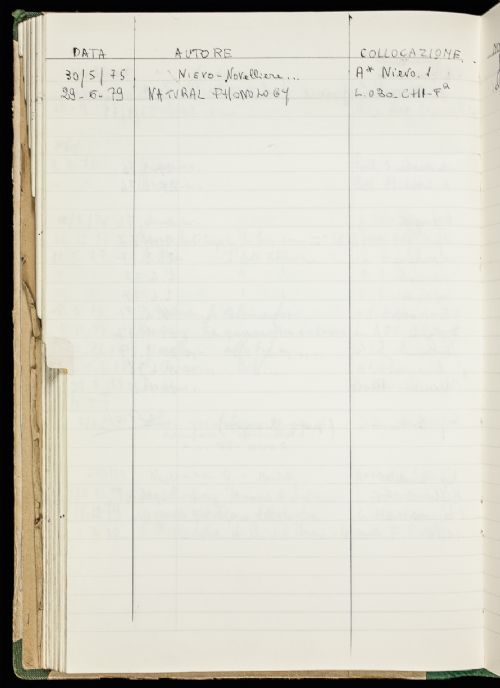 DATA AUTORE COLLOCAZIONE
30/5/75 Nievo-Novelliere... A* Nievo. 1
29-6-79 NATURAL PHONOLOGY L.OBO-CHI-Fa